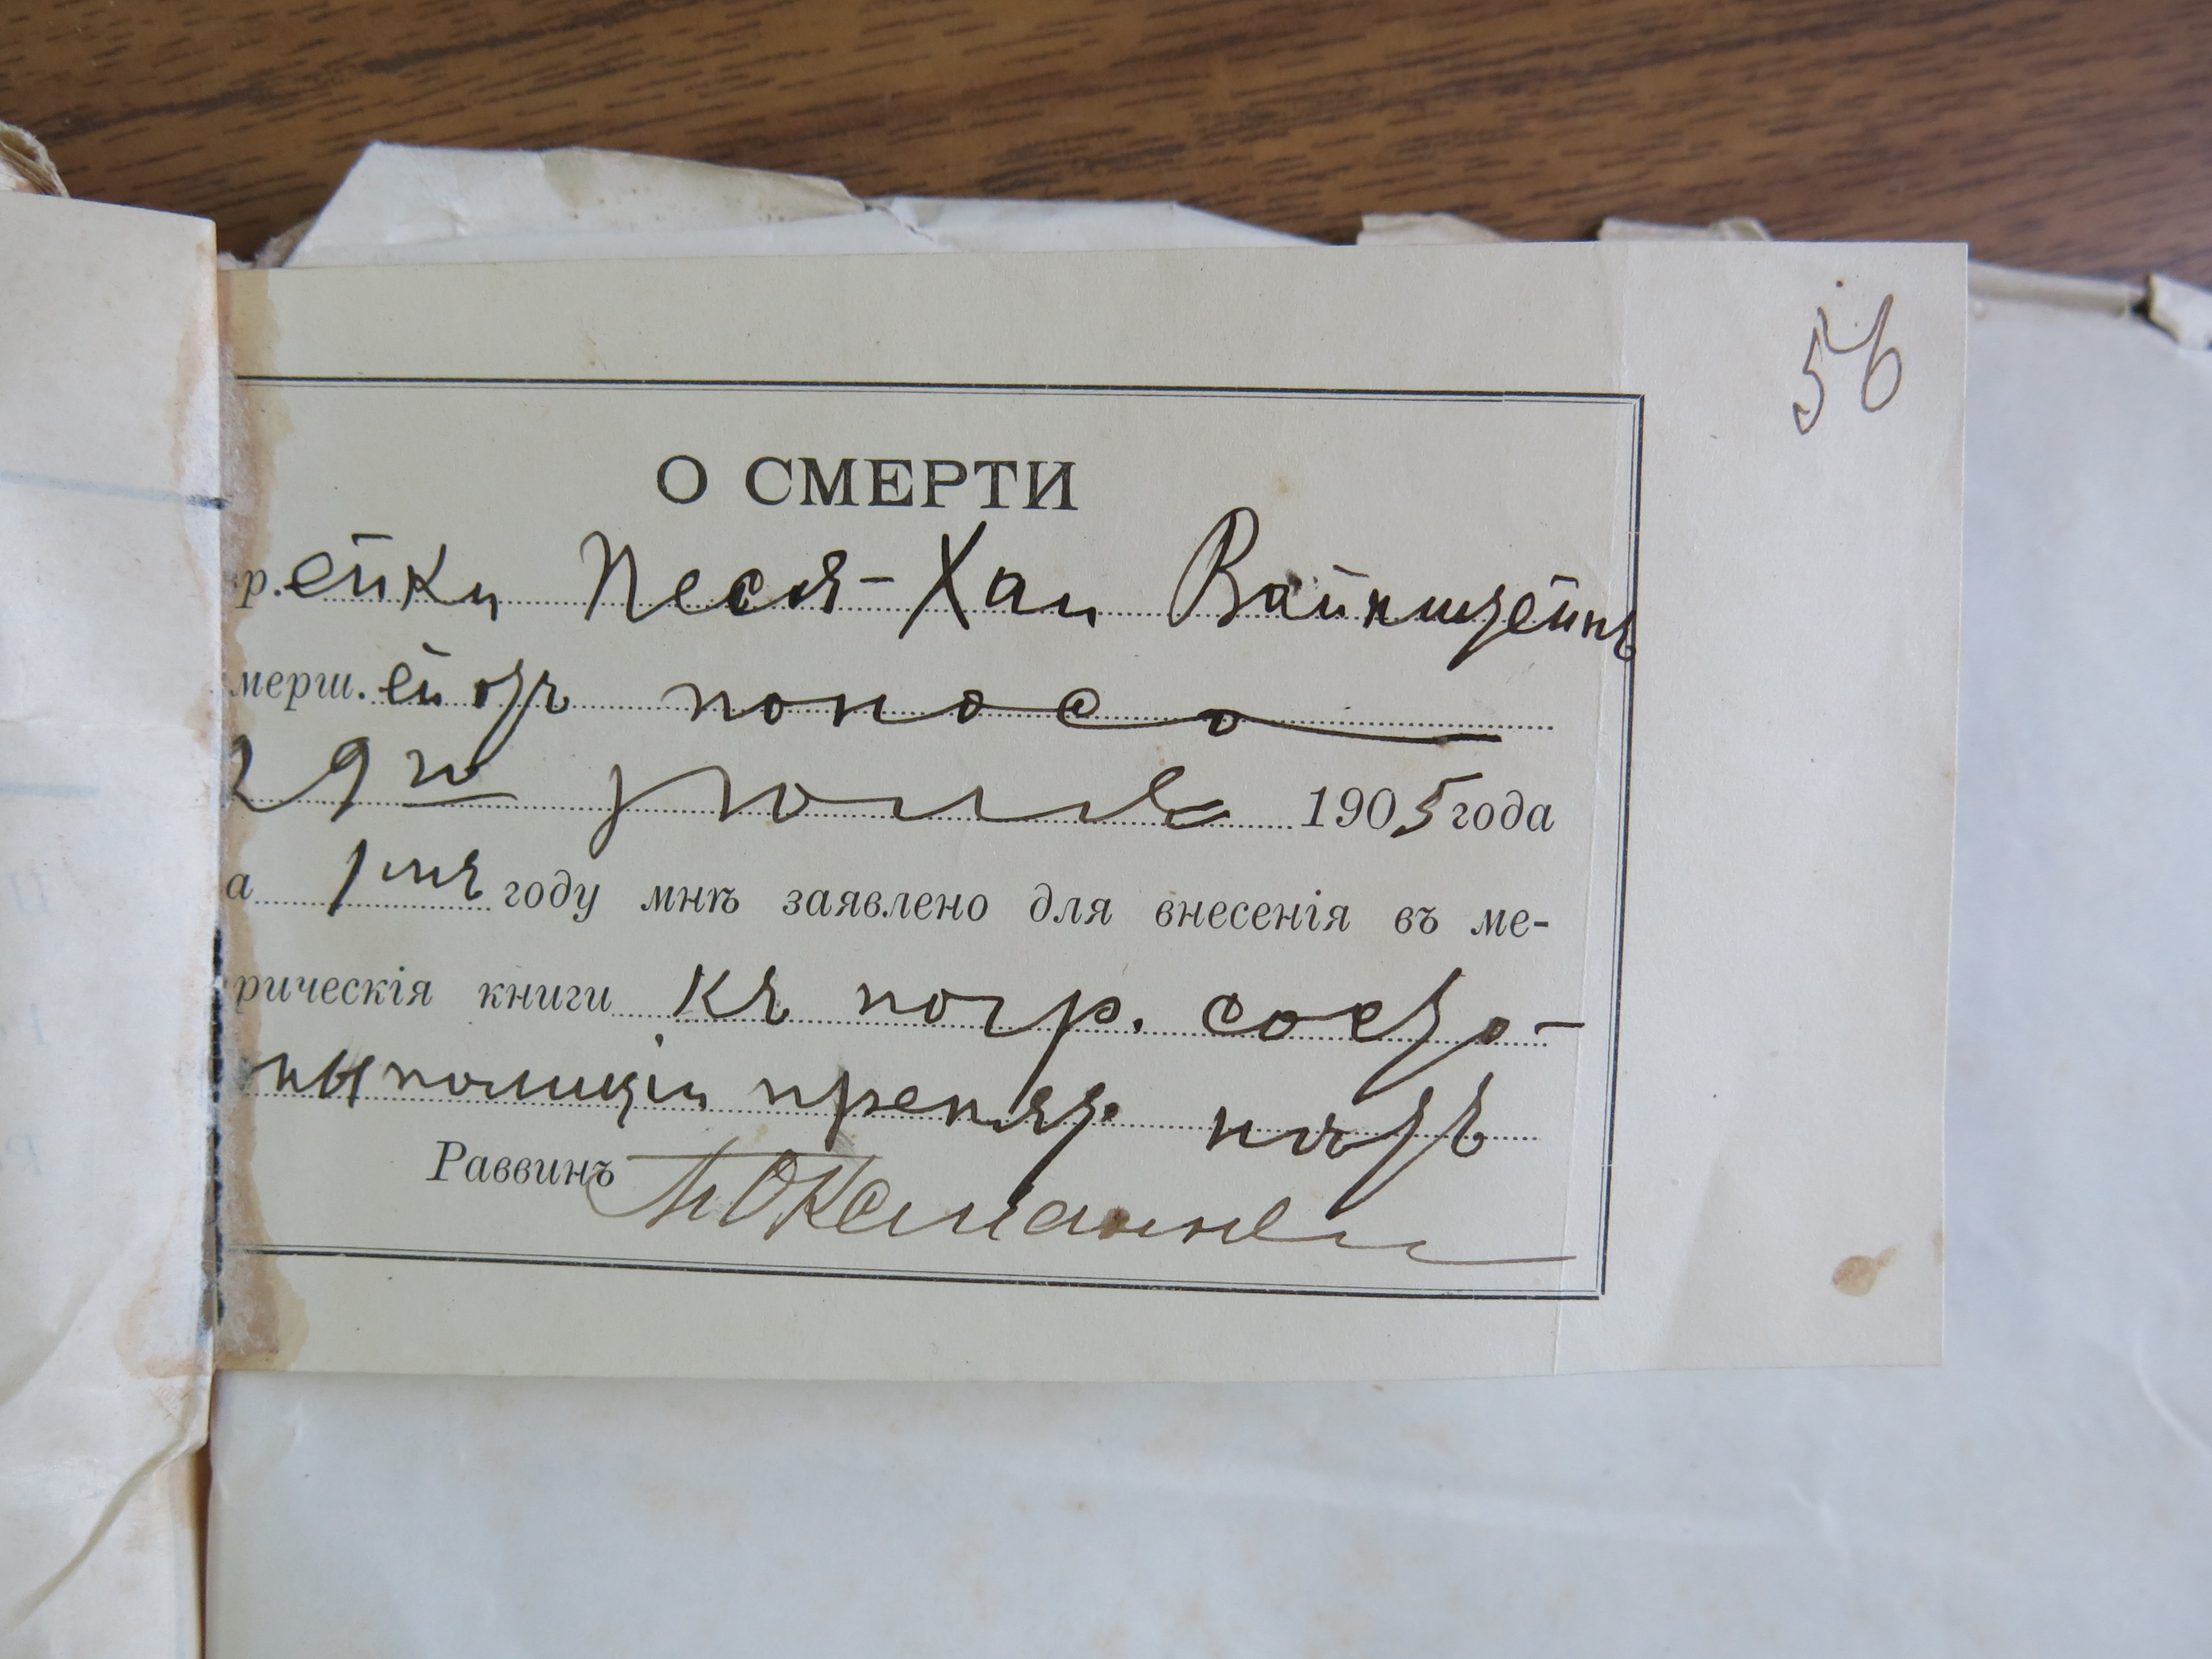 56
О СМЕРТИ
р. ейки Песя-Хаи Вайнштейнъ
мерш. ей отъ поноса
29го юля 1905 года
а 1мъ году мнѣ заявлено для внесенія въ ме-
рическія книги къ погр. со сто-
ны полиціи препят. нѣтъ
Раввинъ